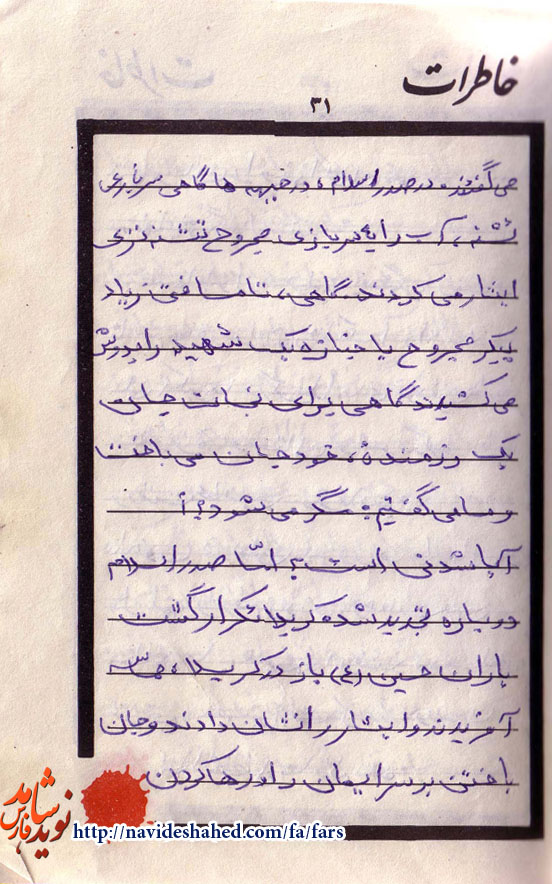 خاطرات
۳۱
می گفتند در صدر اسلام، در جبهه ها گاهی سربازی
تشنه، آب را به سربازی مجروح تشنه تری
ایثار می کردند. گاهی، تا مسافتی زیاد
پیکر مجروح یا جنازه یک شهید را بدوش
می کشیدند گاهی برای نجات جان
یک رزمنده، خود جان می باخت
و ما می گفتیم: مگر می شود؟!
آیا شدنی است؟ امّا صدر اسلام
دوباره تجدید شد، کربلا تکرار گشت
یاران حسین (ع) باز در کربلا، حماسه
آفریدند و ایثار را نشان دادند و جان
باختن بر سر ایمان را و رها کردن
نوید شاهد فارس
http://navideshahed.com/fa/fars